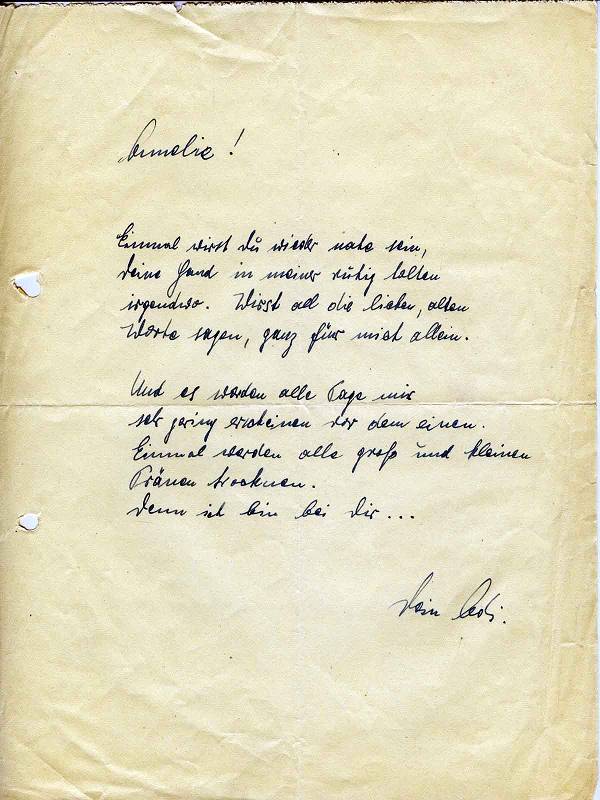 Annelie!
Einmal wirst du wieder nahe sein,
deine Hand in meiner ruhig halten
irgendwo. Wirst all die lieben, alten
Worte sagen, ganz für mich allein.
Und es werden alle Tage mir
sehr gering erscheinen vor dem einen.
Einmal werden alle groß und kleinen
Tränen trocknen.
Denn ich bin bei dir...
Dein